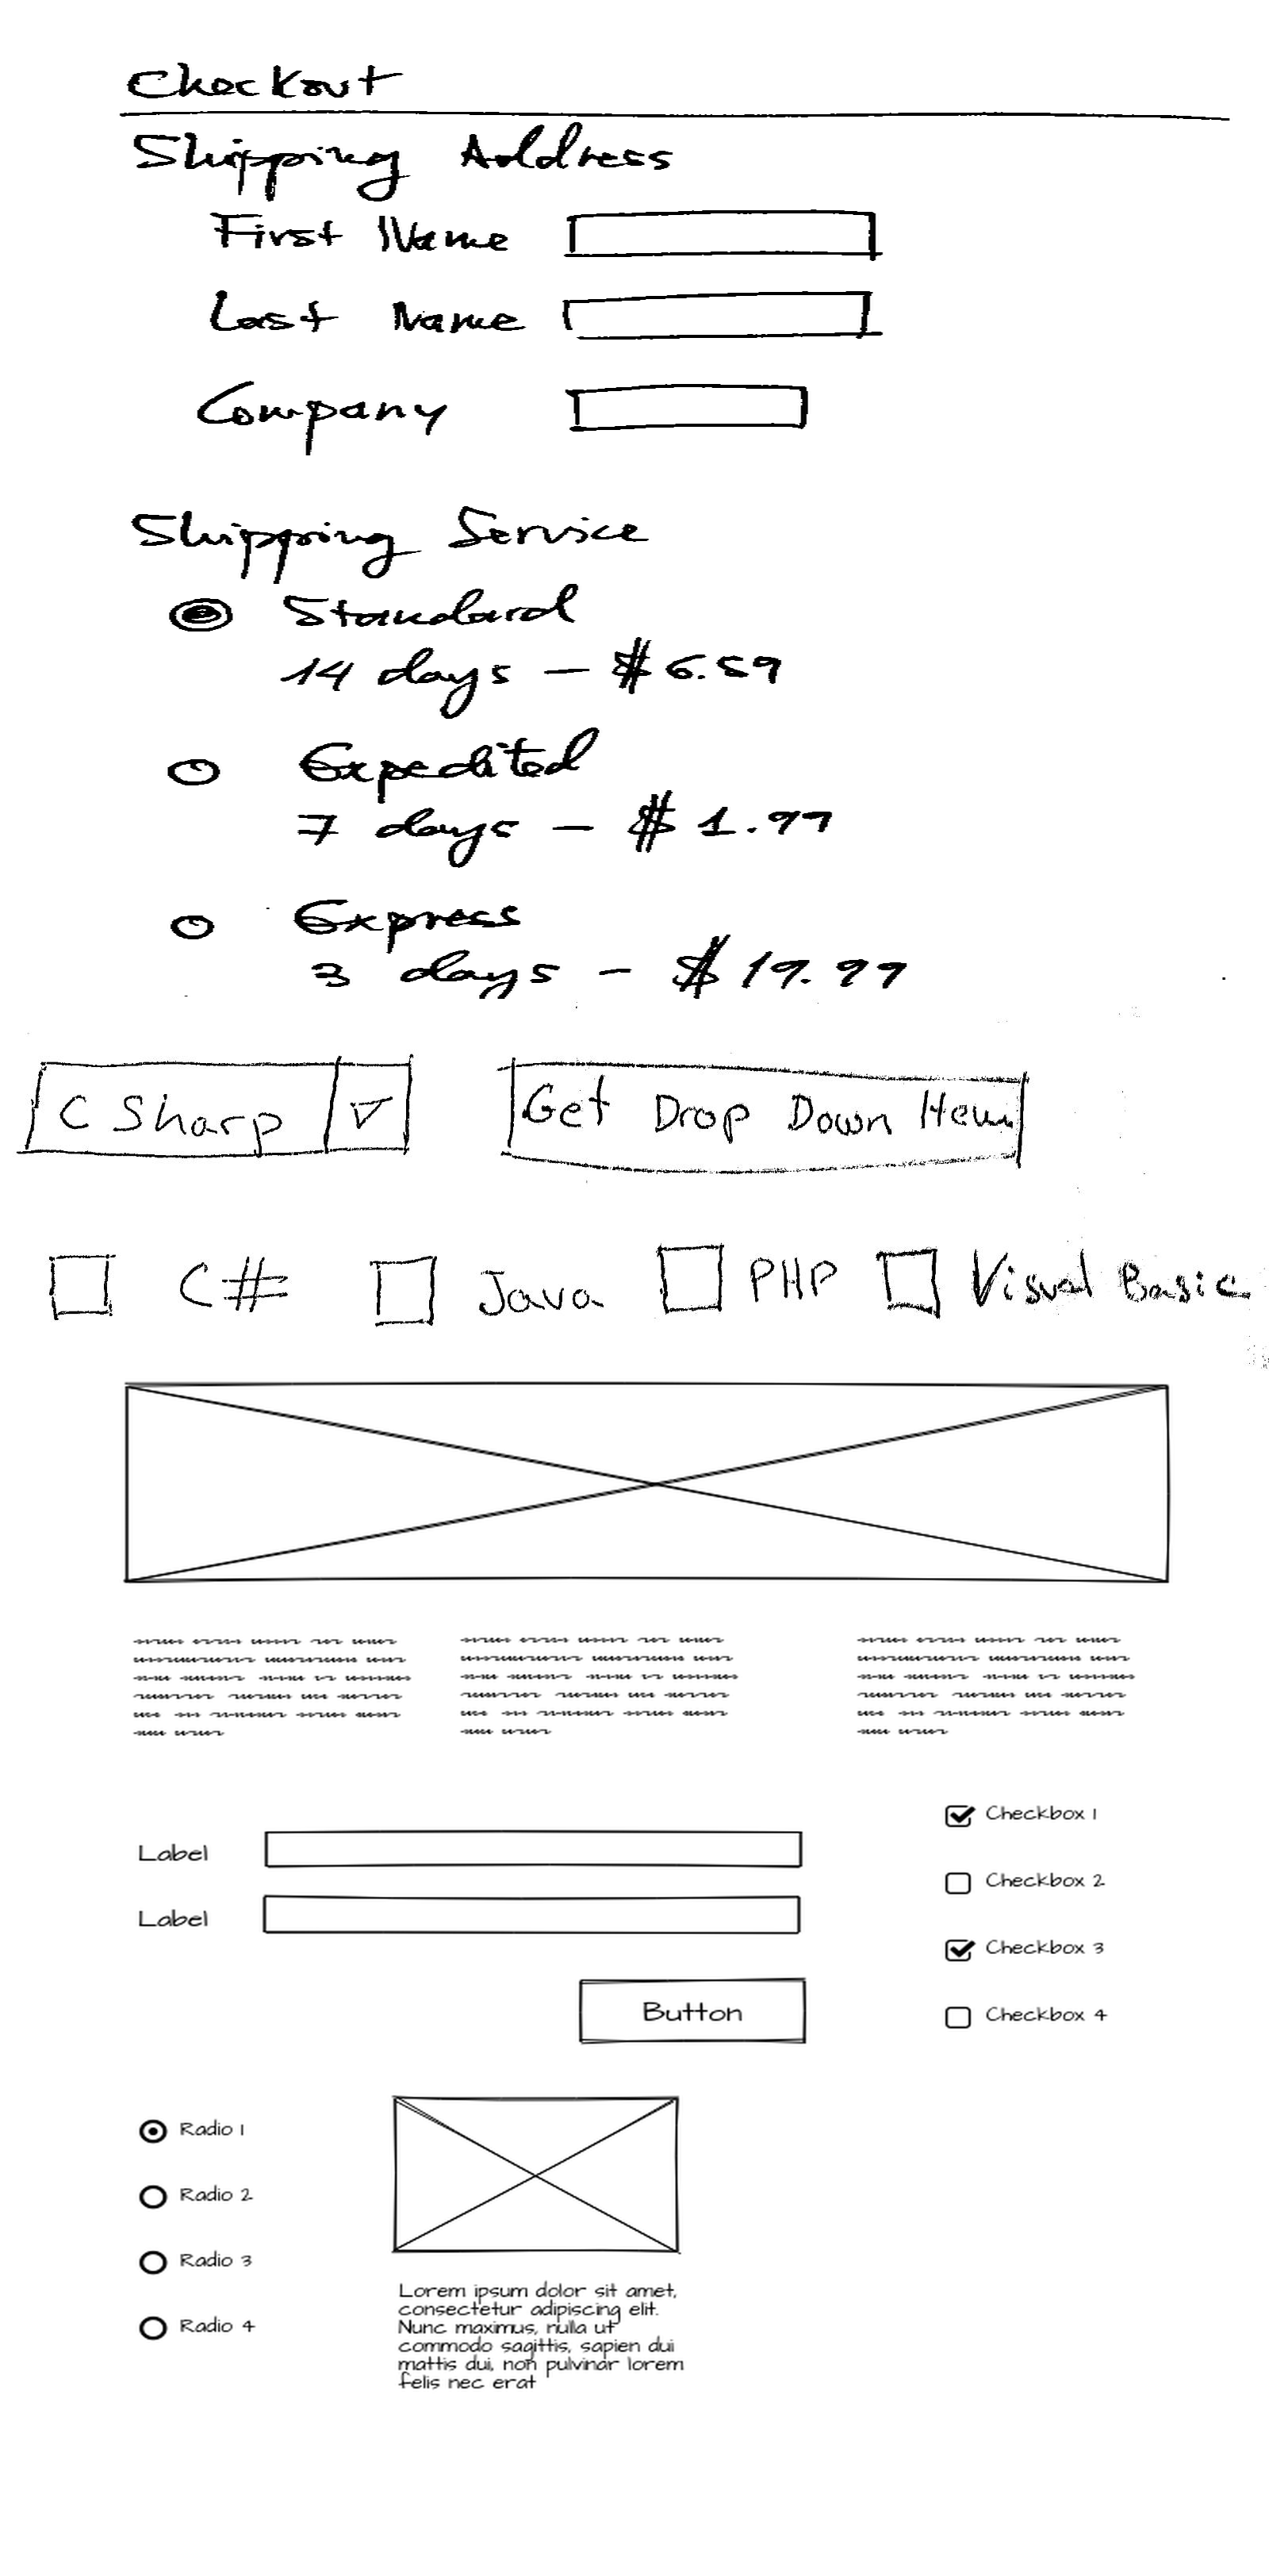 Checkout
Shipping Address
First Name
Last Name
Company
Shipping Service
Standard
14 days - $6.59
Expedited
7 days - $1.99
Express
3 days - $19.99
C Sharp
Get Drop Down
C# Java PHP Visual Basic
Label
Label
Button
Checkbox 1
Checkbox 2
Checkbox 3
Checkbox 4
Radio 1
Radio 2
Radio 3
Radio 4
Lorem ipsum dolor sit amet,
consectetur adipiscing elit.
Nunc maximus, nulla ut
commodo sagittis, sapien dui
mattis dui, non pulvinar lorem
felis nec erat